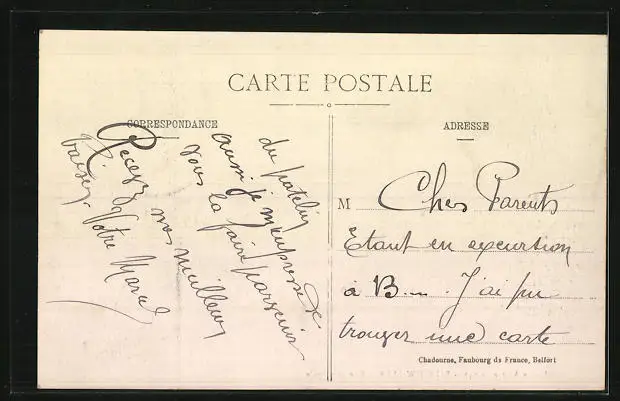 CARTE POSTALE
CORRESPONDANCE
ADRESSE
M Chers Parents
Etant en excursion
à B.... J'ai pu
trouver une carte
du patelin
aussi je m'empresse de
vous la faire parvenir
Recevez nos meilleurs
baisers. Votre Marcel
Chadourne, Faubourg de France, Belfort